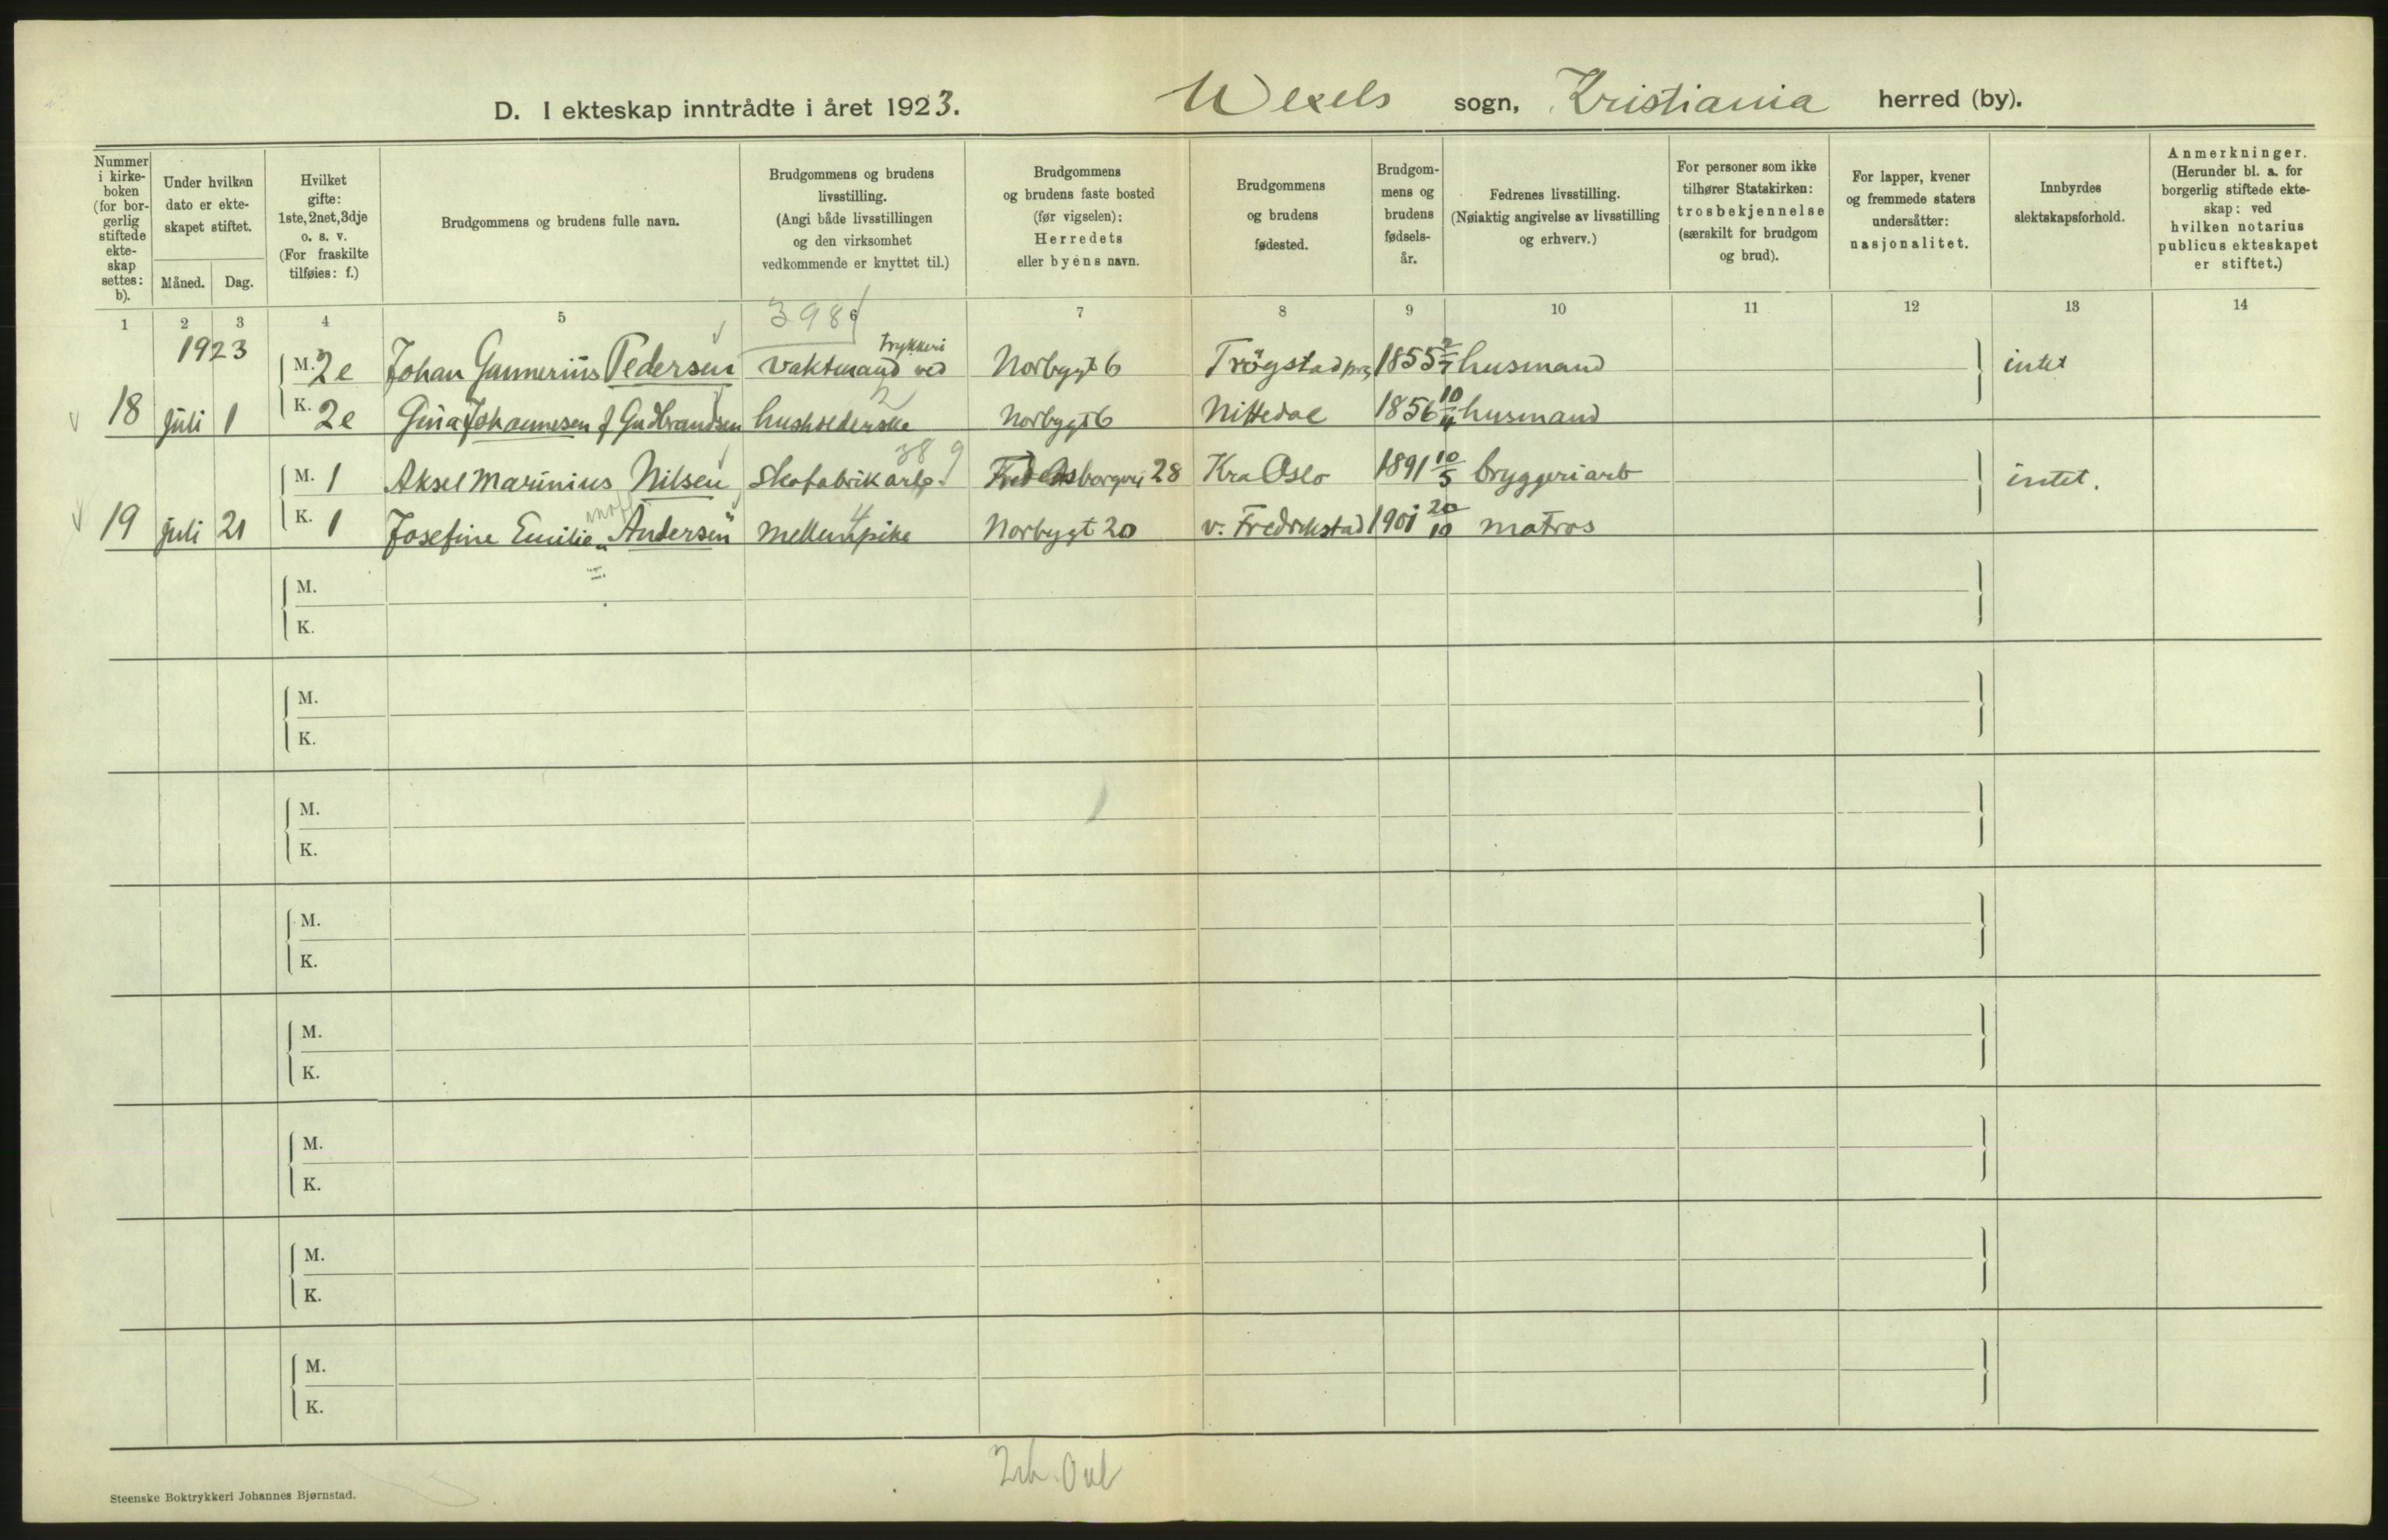 D. I ekteskap inntrådte i året 1923. Wexels sogn, Kristiania herred (by).
Nummer i kirke-boken (for bor-gerlig stiftede ekte-skap settes: b).
Under hvilken dato er ekte-skapet stiftet.
Måned. Dag.
Hvilket gifte: 1ste, 2net, 3dje o. s. v. (For fraskilte tilføies: f.)
Brudgommens og brudens fulle navn.
Brudgommens og brudens livsstilling. (Angi både livsstillingen og den virksomhet vedkommende er knyttet til.)
Brudgommens og brudens faste bosted (før vigselen): Herredets eller byens navn.
Brudgommens og brudens fødested.
Brudgom-mens og brudens fødsels-år.
Fedrenes livsstilling. (Nøiaktig angivelse av livsstilling og erhverv.)
For personer som ikke tilhører Statskirken: trosbekjennelse (særskilt for brudgom og brud).
For lapper, kvener og fremmede staters undersåtter: nasjonalitet.
Innbyrdes slektskapsforhold.
Anmerkninger. (Herunder bl. a. for borgerlig stiftede ekte-skap: ved hvilken notarius publicus ekteskapet er stiftet.)
1 2 3 4 5 6 7 8 9 10 11 12 13 14
398
1923 M. 2e Johan Gunnerius Pedersen vaktmand ved trykkeri Norbygt 6 Trögstad 1855 husmand intet
18 juli 1 K. 2e Gina Johannesen f Gudbrandsen husholderske Norbygt 6 Nittedal 1856 10/4 husmand
M. 1 Aksel Marinius Nilsen Skofabrikarb. 389 Fredensborgvei 28 Kra Oslo 1891 10/5 bryggeriarb intet.
19 juli 21 K. 1 Josefine Emilie Andersen mellempike 4 Norbygt 20 v. Fredrikstad 1901 20/10 matros
M.
K.
M.
K.
M.
K.
M.
K.
M.
K.
M.
K.
M.
K.
M.
K.
Steenske Boktrykkeri Johannes Bjørnstad.